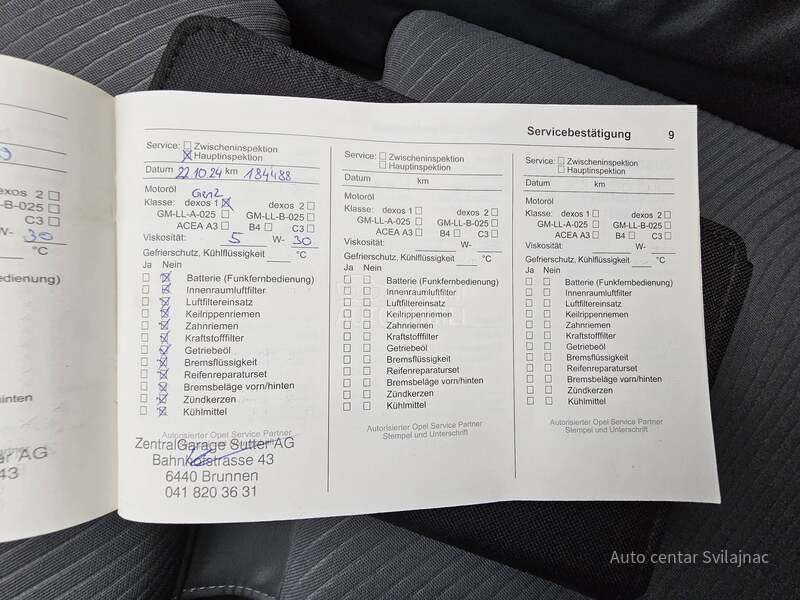 exos 2
L-B-025
C3
W- 30
°C
edienung)
inten
er AG
43
Servicebestätigung 9
Service: Zwischeninspektion
Hauptinspektion
Datum 22.10.24 km 184488
Motoröl Gen2
Klasse: dexos 1 dexos 2
GM-LL-A-025 GM-LL-B-025
ACEA A3 B4 C3
Viskosität: 5 W- 30
Gefrierschutz, Kühlflüssigkeit °C
Ja Nein
Batterie (Funkfernbedienung)
Innenraumluftfilter
Luftfiltereinsatz
Keilrippenriemen
Zahnriemen
Kraftstofffilter
Getriebeöl
Bremsflüssigkeit
Reifenreparaturset
Bremsbeläge vorn/hinten
Zündkerzen
Kühlmittel
Autorisierter Opel Service Partner
ZentralGarage Sutter AG
Bahnhofstrasse 43
6440 Brunnen
041 820 36 31
Service: Zwischeninspektion
Hauptinspektion
Datum km
Motoröl
Klasse: dexos 1 dexos 2
GM-LL-A-025 GM-LL-B-025
ACEA A3 B4 C3
Viskosität: W-
Gefrierschutz, Kühlflüssigkeit °C
Ja Nein
Batterie (Funkfernbedienung)
Innenraumluftfilter
Luftfiltereinsatz
Keilrippenriemen
Zahnriemen
Kraftstofffilter
Getriebeöl
Bremsflüssigkeit
Reifenreparaturset
Bremsbeläge vorn/hinten
Zündkerzen
Kühlmittel
Autorisierter Opel Service Partner
Stempel und Unterschrift
Service: Zwischeninspektion
Hauptinspektion
Datum km
Motoröl
Klasse: dexos 1 dexos 2
GM-LL-A-025 GM-LL-B-025
ACEA A3 B4 C3
Viskosität: W-
Gefrierschutz, Kühlflüssigkeit °C
Ja Nein
Batterie (Funkfernbedienung)
Innenraumluftfilter
Luftfiltereinsatz
Keilrippenriemen
Zahnriemen
Kraftstofffilter
Getriebeöl
Bremsflüssigkeit
Reifenreparaturset
Bremsbeläge vorn/hinten
Zündkerzen
Kühlmittel
Autorisierter Opel Service Partner
Stempel und Unterschrift
Auto centar Svilajnac